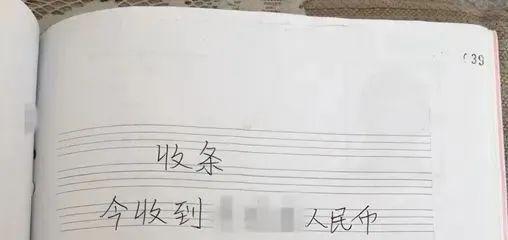 39
收条
今收到 人民币